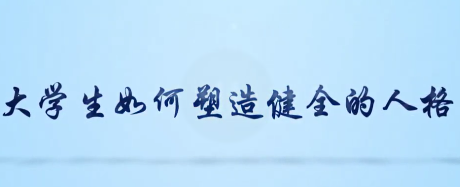 大学生如何塑造健全的人格